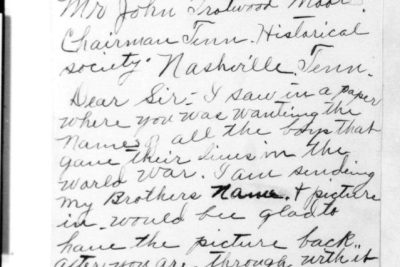 Mr John Trotwood Moor.
Chairman Tenn. Historical
society. Nashville. Tenn.
Dear Sir:- I saw in a paper
where you was wanting the
Names of all the boys that
gave their lives in the
world war. I am sending
my Brothers Name. & picture
in. would bee glad to
have the picture back..
after you are through with it